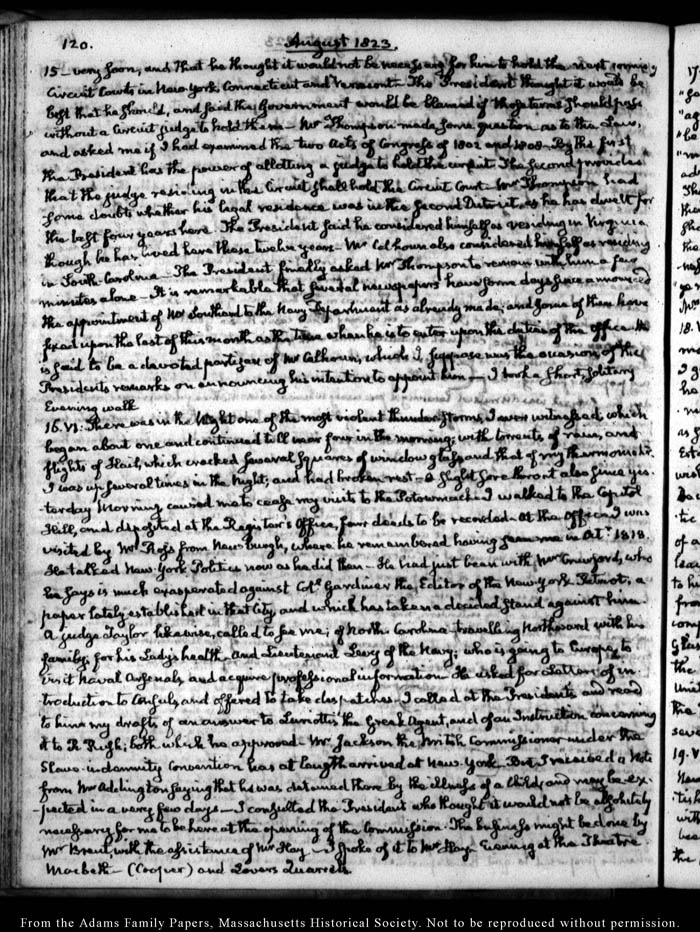 120.
August 1823.
15 – very soon, and that he thought it would not be necessary for him to hold the next coming
Circuit Courts in New-York, Connecticut and Vermont – The President thought it would be
best that he should, and said the Government would be blamed if those terms should pass
without a Circuit judge to hold them – Mr Thompson made some question as to the Law,
and asked me if I had examined the two Acts of Congress of 1802 and 1808. By the first
the President has the power of allotting a judge to hold the circuit. The second provides
that the judge residing in the Circuit shall hold the Circuit Court – Mr Thompson had
some doubts whether his legal residence was in the Second District, as he has dwelt for
the last four years here. The President said he considered himself as residing in Virginia
though he has lived here these twelve years – Mr Calhoun also considered himself as residing
in South-Carolina – The President finally asked Mr Thompson to remain with him a few
minutes alone – It is remarkable that several newspapers have some days since announced
the appointment of Mr Southard to the Navy Department as already made; and some of them have
fixed upon the last of this month as the time when he is to enter upon the duties of the office. He
is said to be a devoted partizan of Mr Calhoun; which I suppose was the occasion of the
Presidents remarks on announcing his intention to appoint him – I took a short, solitary
Evening walk
16. VI: There was in the Night one of the most violent thunder storms I ever witnessed, which
began about one and continued till near four in the morning; with torrents of rain, and
flights of Hail, which cracked several squares of window glass and that of my thermometer.
I was up several times in the Night, and had broken rest – A slight sore throat also since yes-
terday Morning caused me to cease my visit to the Potowmack. I walked to the Capitol
Hill, and deposited at the Register's Office, four deeds to be recorded – At the Office I was
visited by Mr Ross from Newburgh, where he remembered having seen me in Octr 1818.
He talked New-York Politics now as he did then – He had just been with Mr Crawford, who
he says is much exasperated against Coll Gardiner the Editor of the New-York Patriot, a
paper lately established in that City, and which has taken a decided stand against him –
A judge Taylor likewise, called to see me; of North Carolina travelling Northward with his
family, for his Lady's health – And Lieutenant Levy of the Navy; who is going to Europe, to
visit Naval Arsenals, and acquire professional information. He asked for Letters of in-
troduction to Consuls, and offered to take despatches. I called at the Presidents and read
to him my drafts of an answer to Luriottis the Greek Agent, and of an Instruction concerning
it to R. Rush; both which he approved – Mr Jackson the British Commissioner under the
Slave-indemnity Convention has at length arrived at New-York. But I received a Note
from Mr Addington saying that he was detained there by the illness of a Child, and may be ex-
pected in a very few days – I consulted the President who thought it would not be absolutely
necessary for me to be here at the opening of the Commission. The business might be done by
Mr Brent, with the assistance of Mr Hay – I spoke of it to Mr Hay – Evening at the Theatre
Macbeth – (Cooper) and Lovers Quarrels
From the Adams Family Papers, Massachusetts Historical Society. Not to be reproduced without permission.